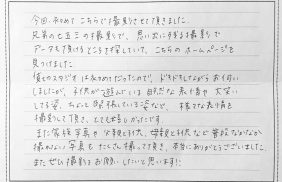 今回、初めて こちらで撮影させて頂きました。
兄弟の七五三の撮影で、思い出に残る撮影で
データも頂けるところを探していて、こちらの ホームページを
見つけました。
貸しスタジオは初めてだったので、ドキドキしながら お伺い
しましたが、子供が遊んでいる 自然な 表情や 大笑い
してる姿、ちょっと 緊張している姿など、様々な表情を
撮影して頂き、とても嬉しかったです。
また家族写真や 父親と子供、母親と子供 など 普段なかなか
撮れない 写真も たくさん撮って頂き、本当にありがとうございました。
また ぜひ撮影を お願いしたいと思います!!